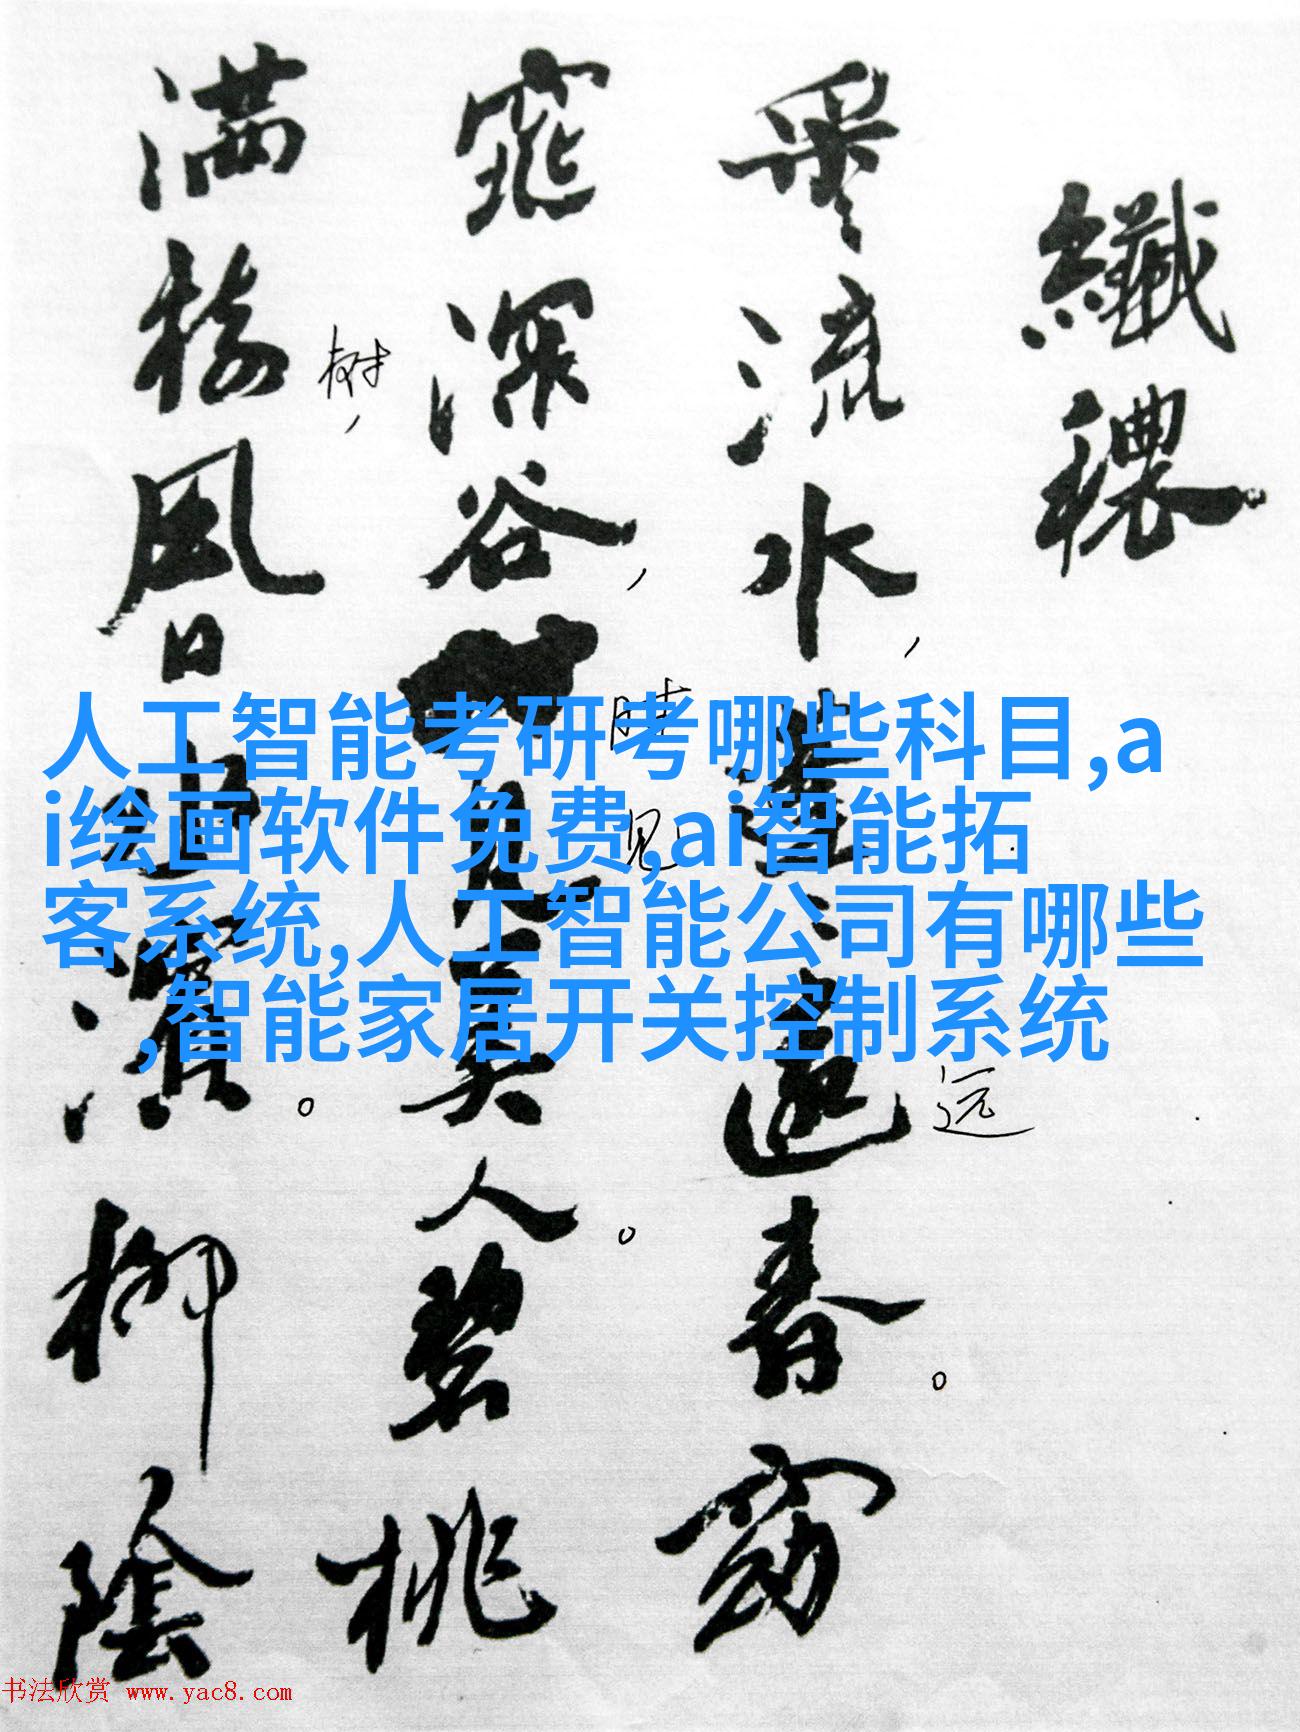 纖穠
采〻流水,〻遠春。窈
远
窕深谷,見美人。碧桃
时
见
满樹,風日水濱。柳陰
树
人工智能考研考哪些科目,a
i绘画软件免费,ai智能拓
客系统,人工智能公司有哪些
,智能家居开关控制系统
书法欣赏 www.yac8.com